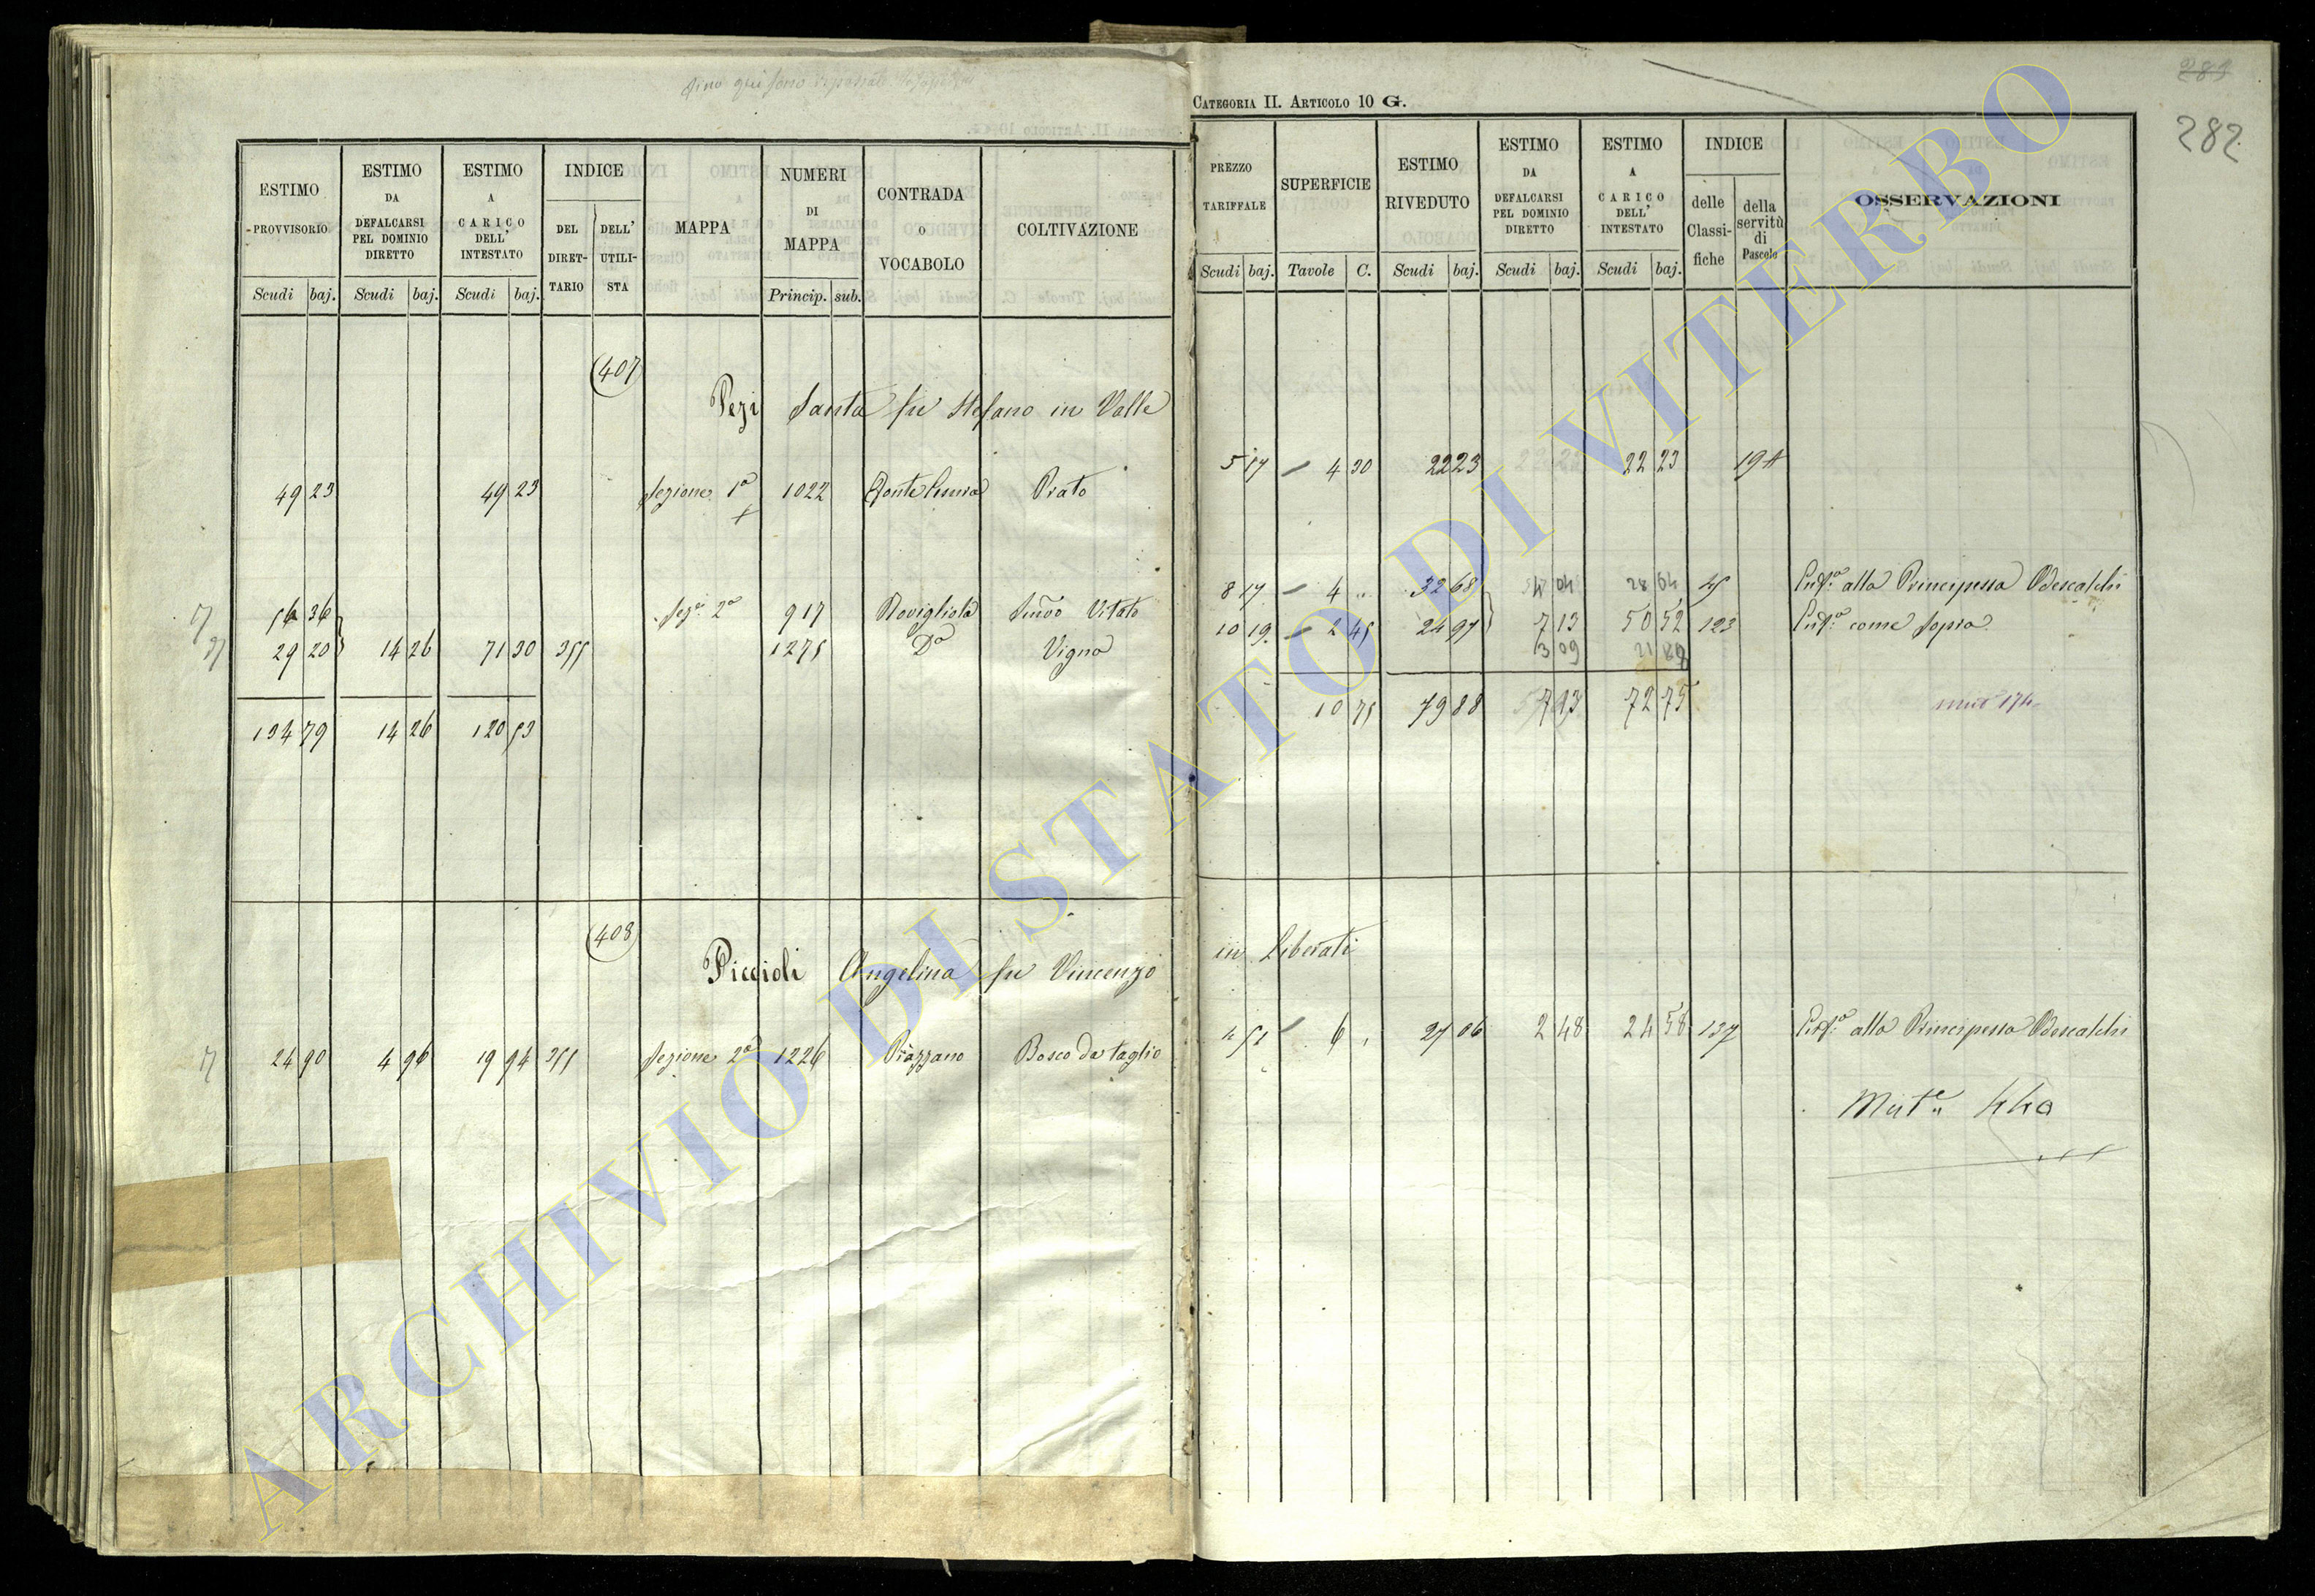 CATEGORIA II. ARTICOLO 10 G.
282
ESTIMO PROVVISORIO
ESTIMO DA DEFALCARSI PEL DOMINIO DIRETTO
ESTIMO A CARICO DELL' INTESTATO
INDICE
DEL DIRET-TARIO
DELL' UTILI-STA
MAPPA
NUMERI DI MAPPA
CONTRADA O VOCABOLO
COLTIVAZIONE
Scudi baj. Scudi baj. Scudi baj. Princip. sub.
PREZZO TARIFFALE
SUPERFICIE
ESTIMO RIVEDUTO
ESTIMO DA DEFALCARSI PEL DOMINIO DIRETTO
ESTIMO A CARICO DELL' INTESTATO
INDICE
delle Classi-fiche
della servitù di Pascolo
OSSERVAZIONI
Scudi baj. Tavole C. Scudi baj. Scudi baj. Scudi baj.
407
Santa fu Stefano in Valle
49 23 49 23 Sezione 1a 1022 Prato
5 17 4 30 22 23 22 23
56 36 Seze 2a 917 Rovigliola Vitato
29 20 14 26 71 30 355 1275 Da Vigna
134 79 14 26 120 53
8 17 4 " 32 68 45 alla Principessa Odescalchi
10 19 2 45 24 97 7 13 50 52 123 come sopra
3 09 21 88
10 75 79 88 7 13 72 75
408
Piccioli Angelina fu Vincenzo
in Liberati
24 90 4 96 19 94 355 Sezione 2a 1226 Bosco da taglio
4 51 6 27 06 2 48 24 58 137 alla Principessa Odescalchi
ARCHIVIO DI STATO DI VITERBO